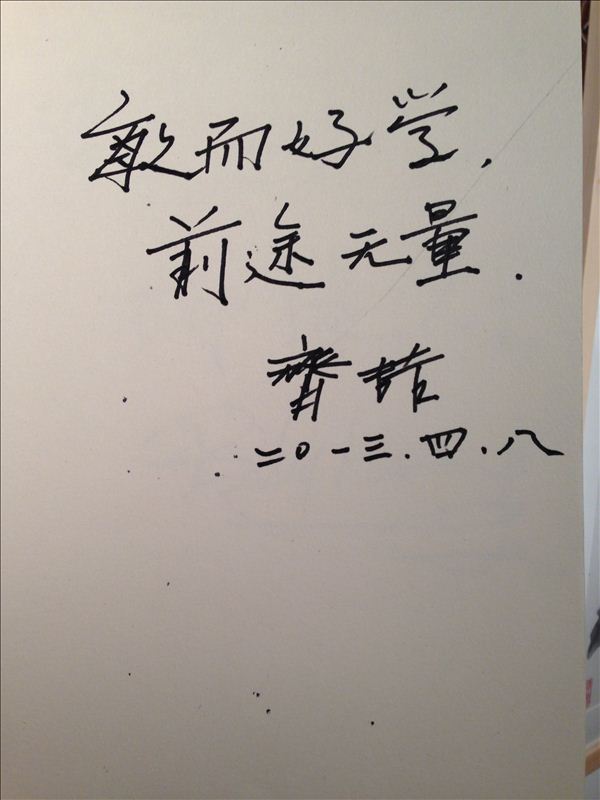 敏而好学，
前途无量.
齊
二〇一三.四.八